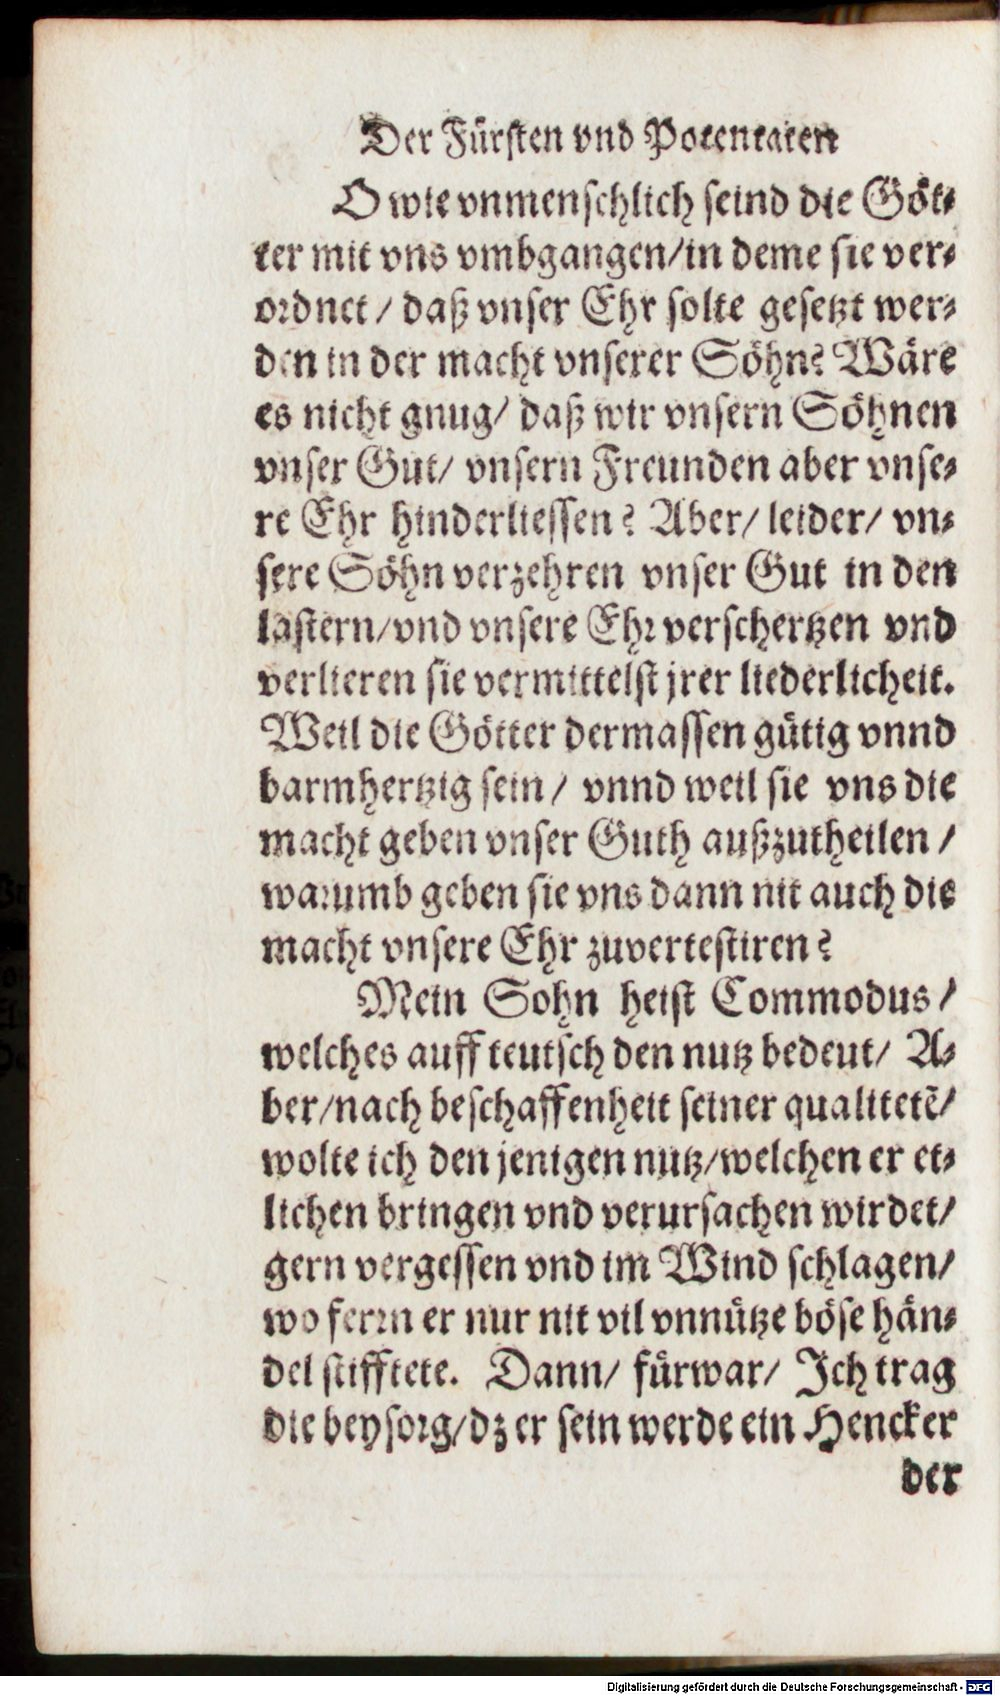 Der Fürsten vnd Potentaten
O wie vnmenschlich seind die Göt-
ter mit vns vmbgangen/in deme sie ver-
ordnet / daß vnser Ehr solte gesetzt wer-
den in der macht vnserer Söhn? Wäre
es nicht gnug/ daß wir vnsern Söhnen
vnser Gut/ vnsern Freunden aber vnse-
re Ehr hinderliessen? Aber/ leider/ vn-
sere Söhn verzehren vnser Gut in den
lastern/vnd vnsere Ehr verschertzen vnd
verlieren sie vermittelst jrer liederlicheit.
Weil die Götter dermassen gütig vnnd
barmhertzig sein / vnnd weil sie vns die
macht geben vnser Guth außzutheilen /
warumb geben sie vns dann nit auch die
macht vnsere Ehr zuvertestiren?
Mein Sohn heist Commodus /
welches auff teutsch den nutz bedeut/ A-
ber/nach beschaffenheit seiner qualitetẽ/
wolte ich den jenigen nutz/welchen er et-
lichen bringen vnd verursachen wirdet/
gern vergessen vnd im Wind schlagen/
wo ferrn er nur nit vil vnnütze böse hän-
del stifftete. Dann/ fürwar/ Ich trag
die beysorg/dz er sein werde ein Hencker
der
Digitalisierung gefördert durch die Deutsche Forschungsgemeinschaft - DFG